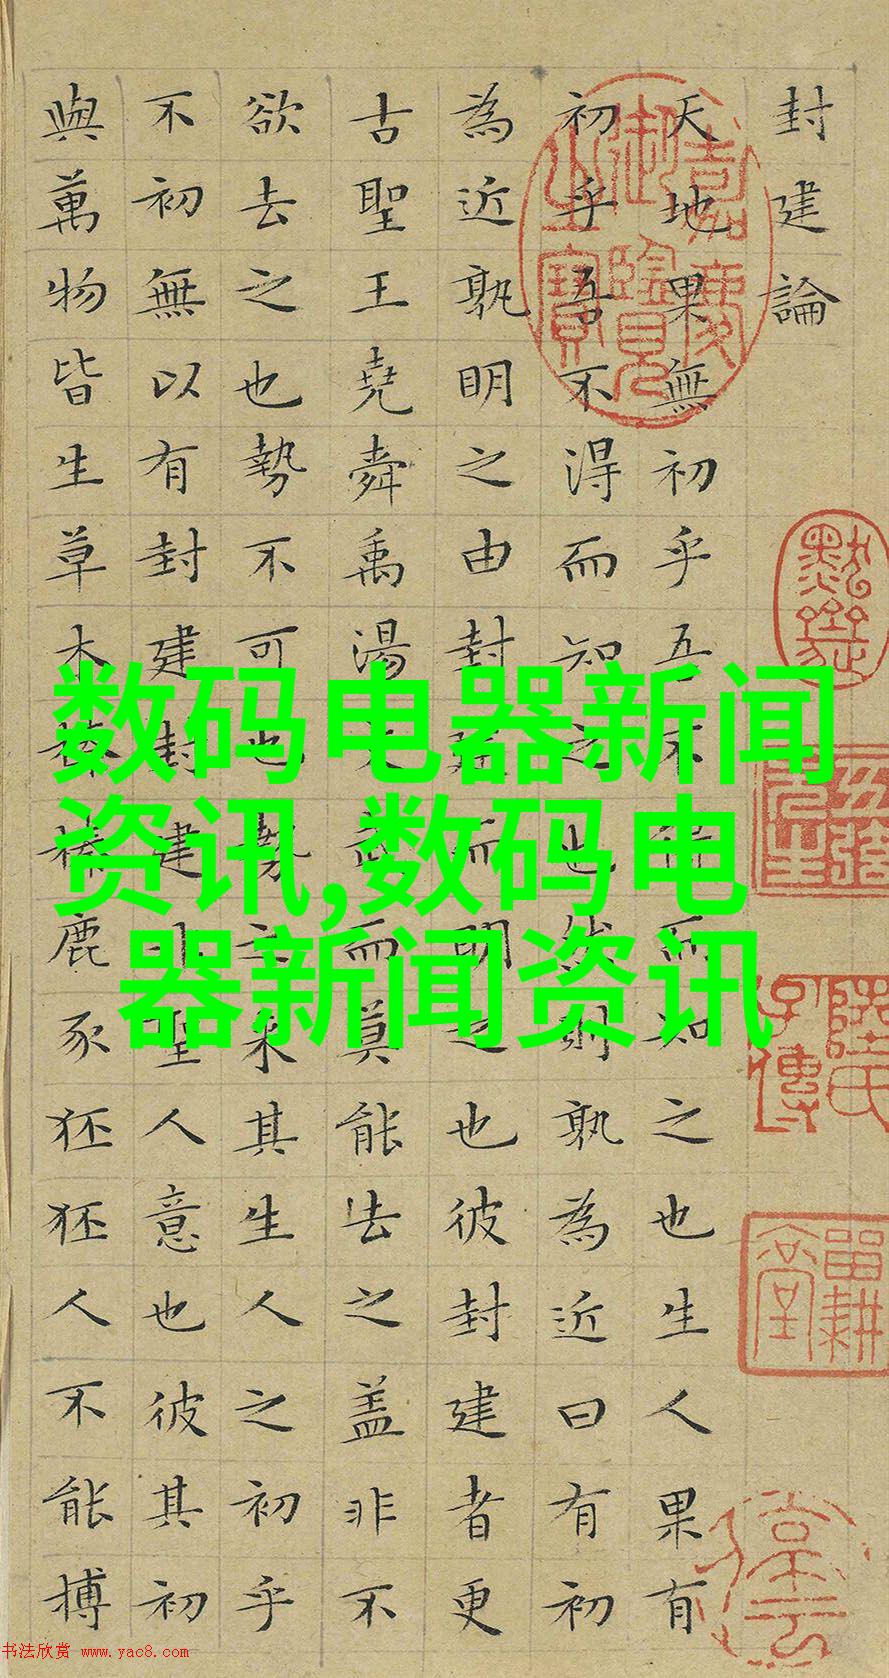 封建論
天地果無初乎吾不得而知之也生人果有
初乎吾不得而知之也然則孰為近曰有初
為近孰明之由封建而明之也彼封建者更
古聖王堯舜禹湯文武而莫能去之盖非不
欲去之也勢不可也勢之來其生人之初乎
不初無以有封建封建非聖人意也彼其初
與萬物皆生草木榛榛鹿豕狉狉人不能搏
嘉慶御覽之寶
陸氏子傳
留耕堂
数码电器新闻
资讯,数码电
器新闻资讯
书法欣赏 www.yac8.com